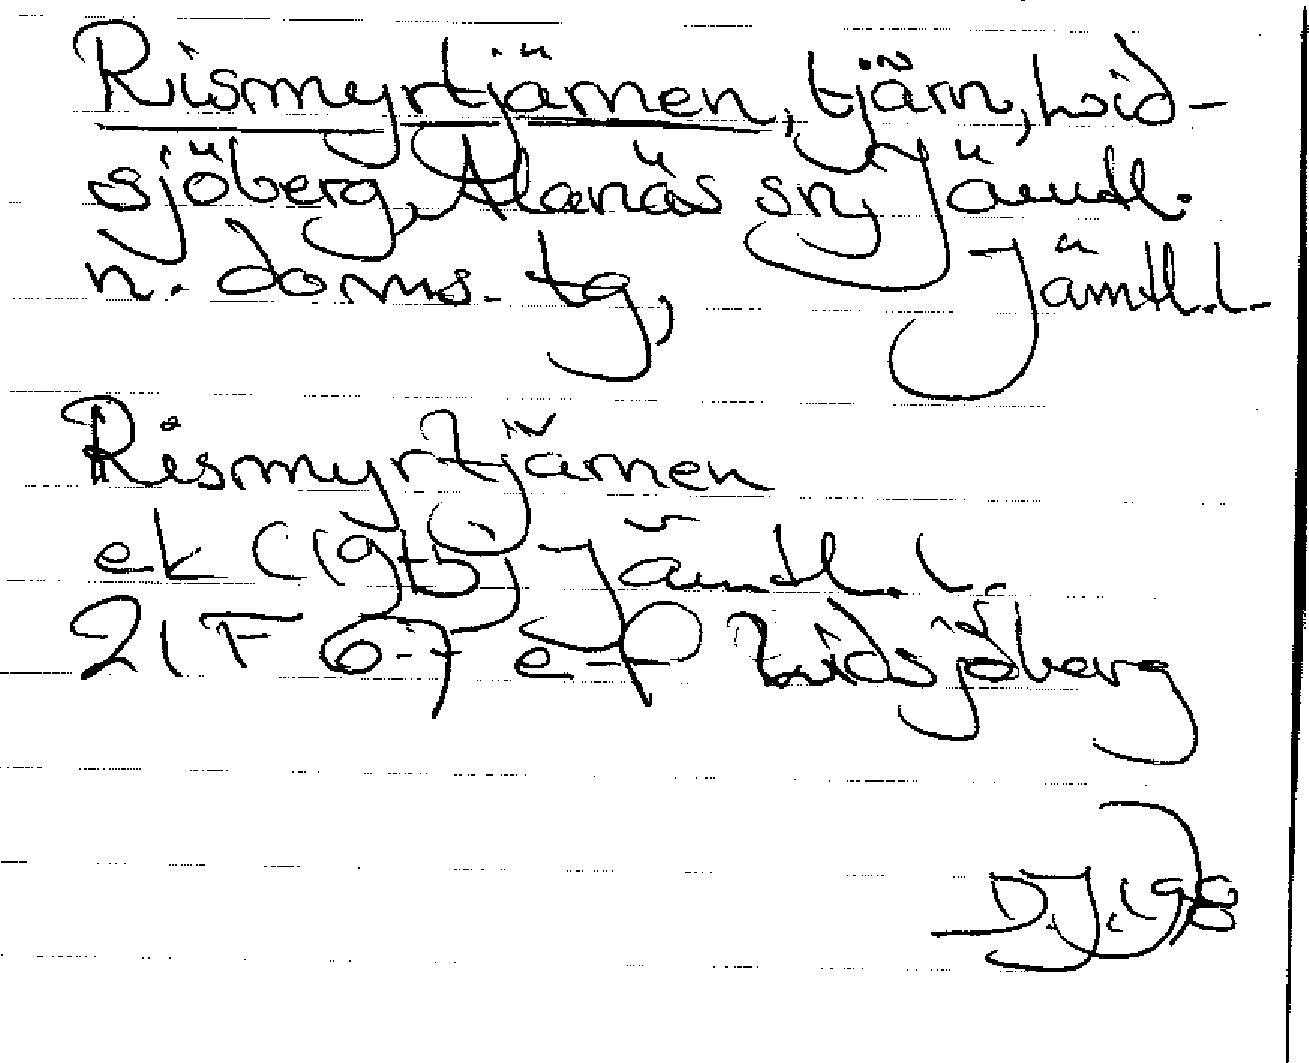 Rismyrtjärnen, tjärn, Wid-
sjöberg, Alanäs sn, Jämtl.
n. doms. tg, Jämtl. l.
Rismyrtjärnen
ek (1965) Jämtl. l.
21F 6-7 e-f Widsjöberg